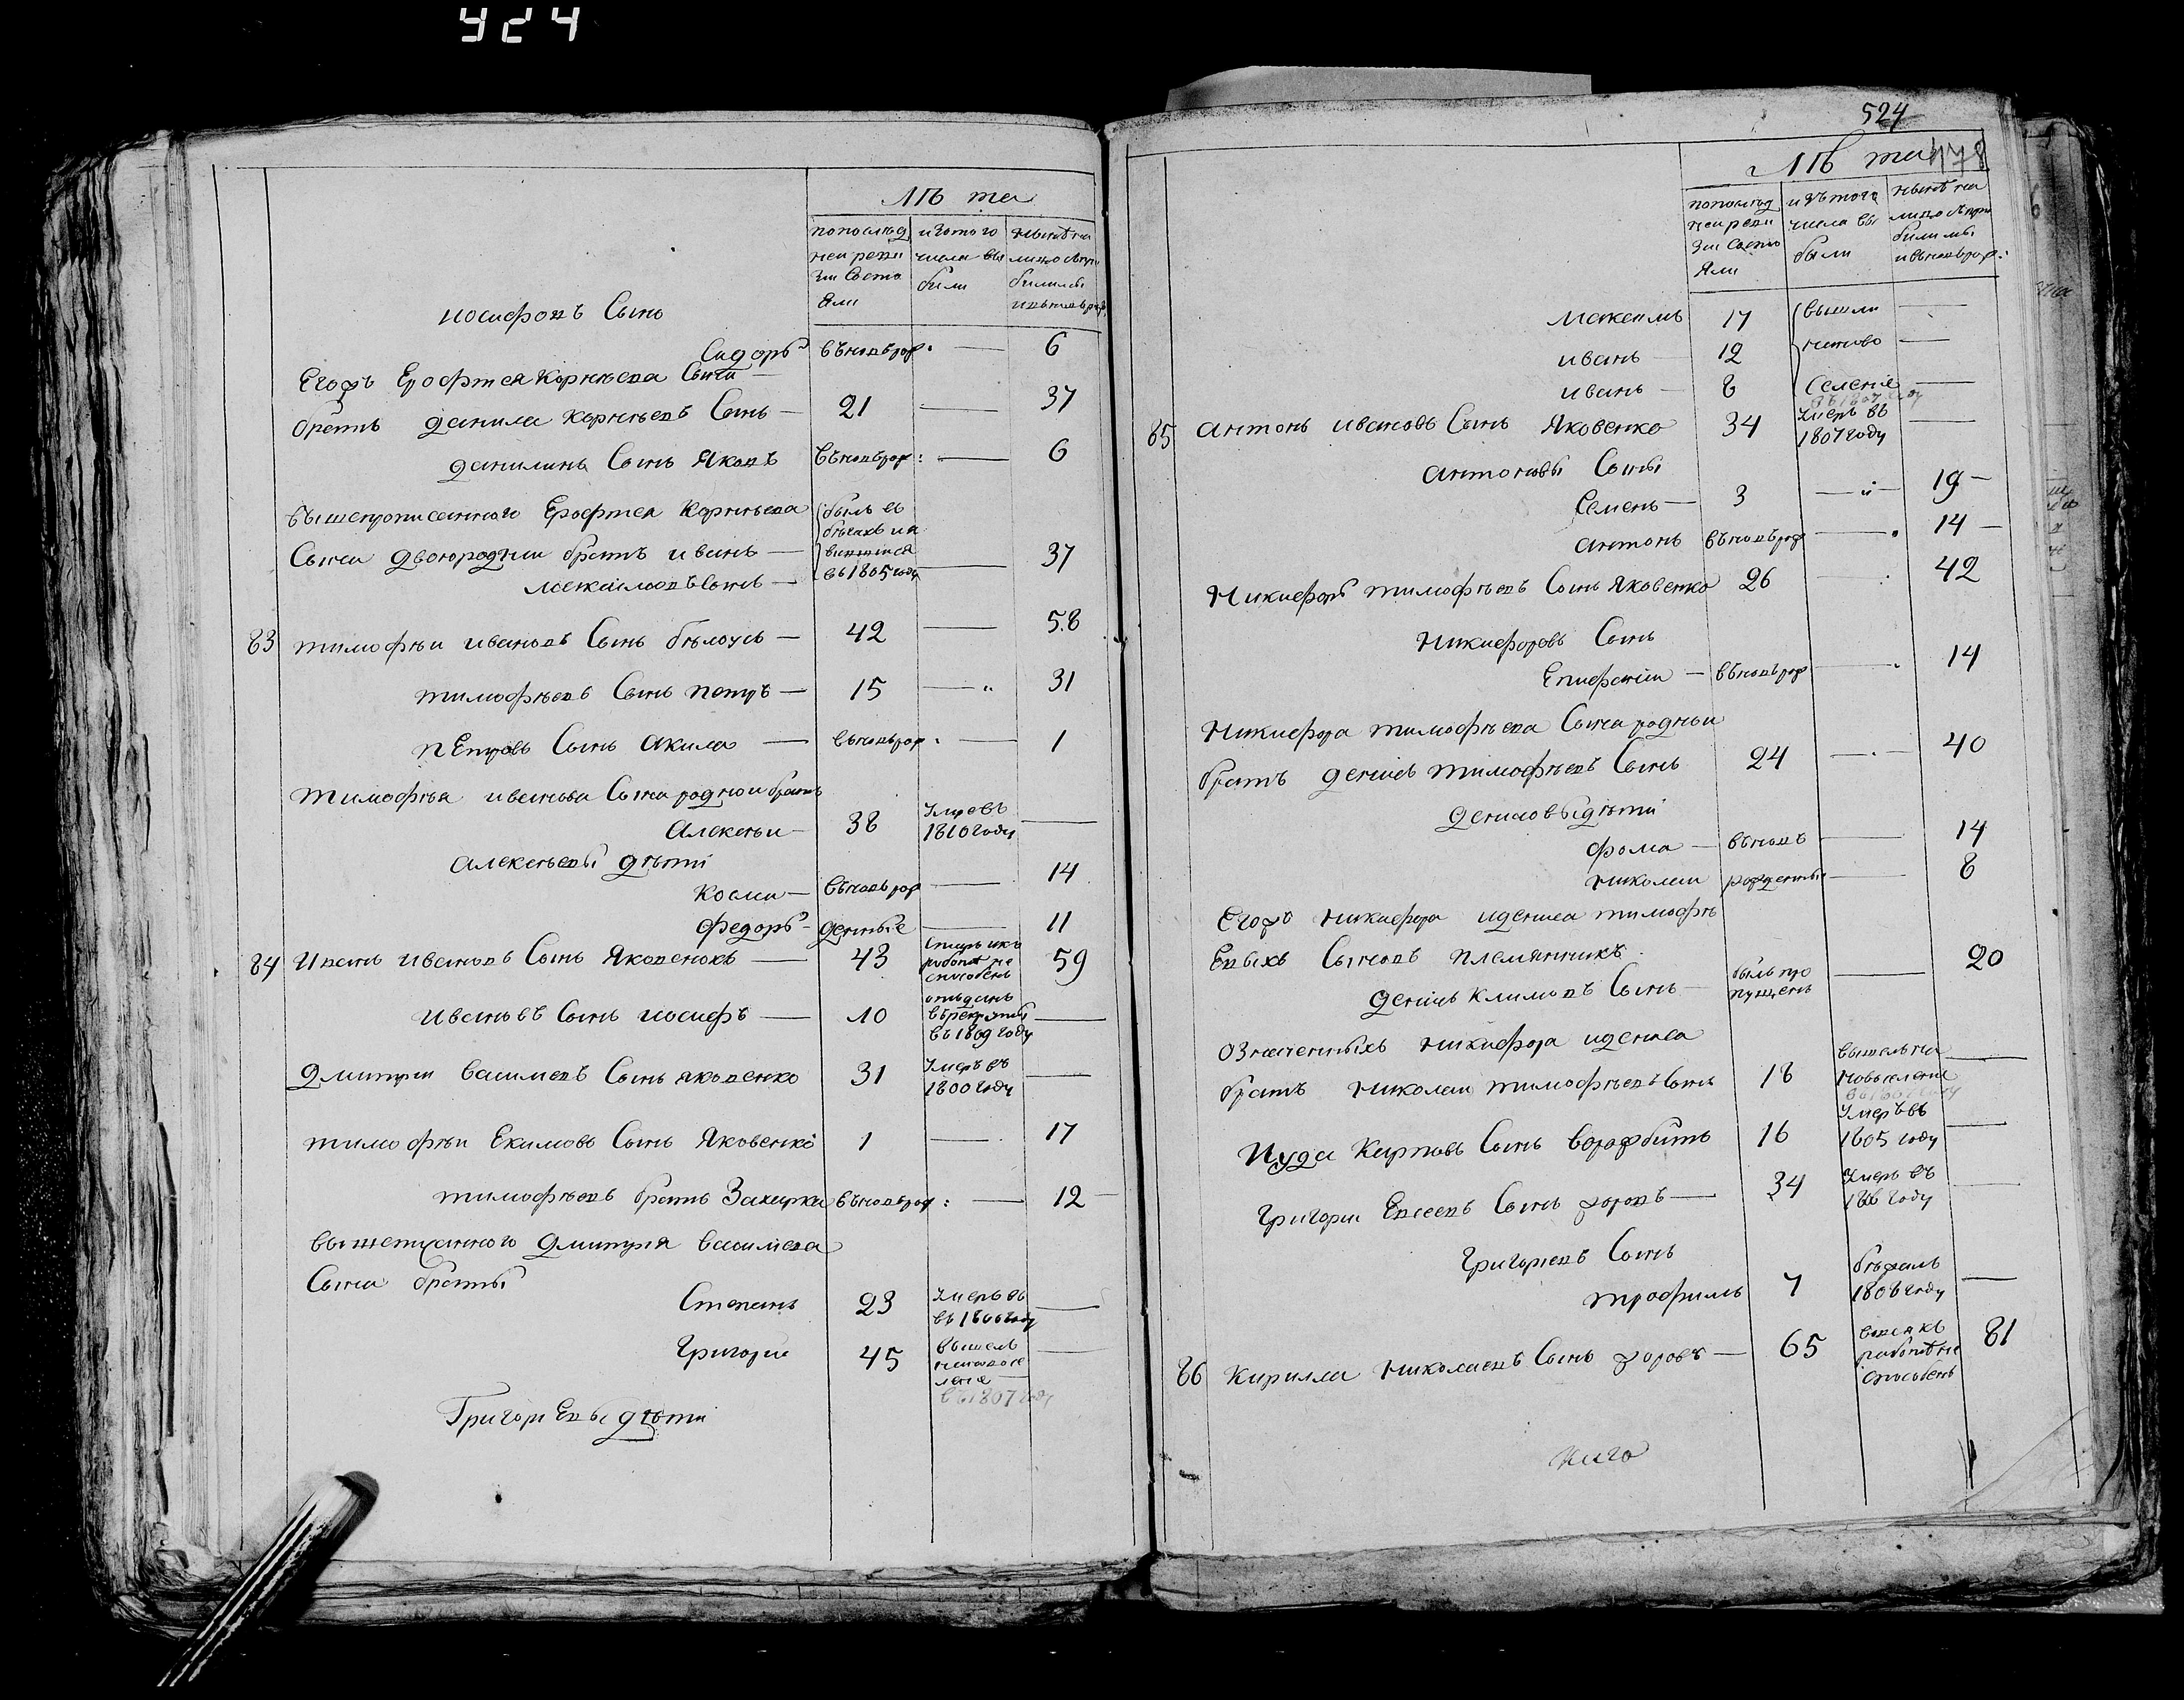 924
Лѣ та
пополѣд
ней реви
зіи Состо
яли
изтого
числа вы
были
нынѣ на
лицо
Иосифовъ Сынъ
Сидоръ въновърож: — 6
Егожъ Ерофтея Корнѣева Сына
братъ Данила Корнѣевъ Сынъ — 21 — 37
Данилинъ Сынъ Яковъ въновърож: — 6
вышепрописанного Ерофтея Корнѣева
Сына двоюродный братъ Иванъ —
Максимовъ Сынъ —
былъ въ
бѣгахъ
въ 1805 году — 37
83 Тимофѣи Ивановъ Сынъ бѣлоусъ — 42 — 58
Тимофѣевъ Сынъ Петръ — 15 — 31
Петровъ Сынъ Акила — въновърож: — 1
Тимофѣя Иванова Сына роднои братъ
Алексѣи — 38 Умре въ
1810 году —
Алексѣевы дѣти
Косма — въновърож — 14
Федоръ — денные — 11
84 Иванъ Ивановъ Сынъ Яковенокъ — 43
работѣ не
способенъ 59
Ивановъ Сынъ Иосифъ — 10
отъданъ
въ рекруты
въ 1809 году —
Дмитрии Васильевъ Сынъ Яковенко 31 Умеръ въ
1800 году —
Тимофѣи Екимовъ Сынъ Яковенко 1 — 17
Тимофѣевъ братъ Захарка въновърож: — 12
вышеписанного Дмитрия Васильева
Сына братьи
Степанъ 23 Умеръ въ
въ 1800 году —
Григорiи 45 вышелъ
нановосе
ление —
въ 1807 году
Григорiевы дѣти
524
478
Лѣ та
пополѣд
ней реви
зіи Состо
яли
изъ того
числа вы
были
нынѣ на
лицо с при
былыми
и вновьрож:
Максимъ 17 вышли —
Иванъ — 12 наново —
Иванъ — 8 Селенiе —
въ 1807 году
85 Антонъ Ивановъ Сынъ Яковенко 34 Умеръ въ
1807 году —
Антоновы Сыны
Семенъ — 3 — 19
Антонъ въновърож — 14
Никифоръ Тимофѣевъ Сынъ Яковенко 26 — 42
Никифоровъ Сынъ
Епифанiи — въновърож — 14
Никифора Тимофѣева Сына роднои
братъ Денисъ Тимофѣевъ Сынъ 24 — 40
Денисовы дѣти
Фома — въновъ — 14
Николаи рожденные — 8
Егожъ Никифора и Дениса Тимофѣ
Евыхъ Сыновъ племянникъ
Денисъ Климовъ Сынъ — былъ про
пущенъ — 20
означенныхъ Никифора и Дениса
братъ Николаи Тимофѣевъ Сынъ 18 вышелъ на
новоселенiе —
Иуда Карповъ Сынъ Ворожбитъ 16 Умеръ въ
1805 году —
Григории Евсеевъ Сынъ — 34 Умеръ въ
году —
Григорiевъ Сынъ
Трофимъ 7 бѣжалъ
1806 году —
86 Кирилла Николаевъ Сынъ — 65
работѣ не
способенъ 81